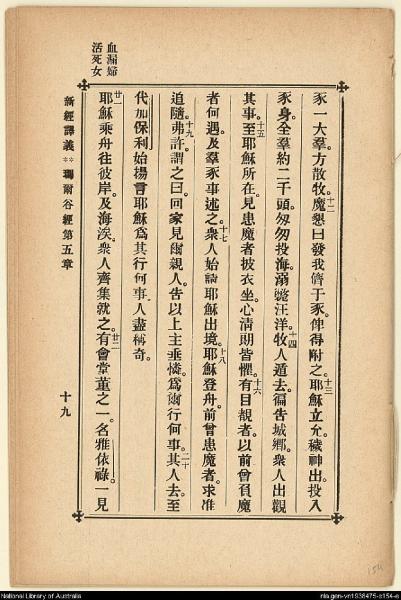 豕一大羣。方散牧。十二魔懇曰發我儕于豕。俾得附之。十三耶穌立允。穢神出投入
豕身。全羣約二千頭。匆匆投海。溺斃汪洋。十四牧人遁去。徧告城鄉。衆人出觀
其事。十五至耶穌所在。見患魔者披衣坐。心清朗皆懼。十六有目覩者。以前曾負魔
者何遇。及羣豕事述之。十七衆人始請耶穌出境。十八耶穌登舟。前曾患魔者。求准
追隨。十九弗許。謂之曰。回家見爾親人。告以上主垂憐。爲爾行何事。二十其人去。至
代加保利始揚言耶穌爲其行何事。人盡稱奇。
廿一耶穌乘舟往彼岸。及海涘。衆人齊集就之。廿二有會堂董之一。名雅依祿。一見
血漏婦
活死女
新經譯義 瑪爾谷經第五章 十九
154
National Library of Australia
nla.gen-vn1938475-s154-e